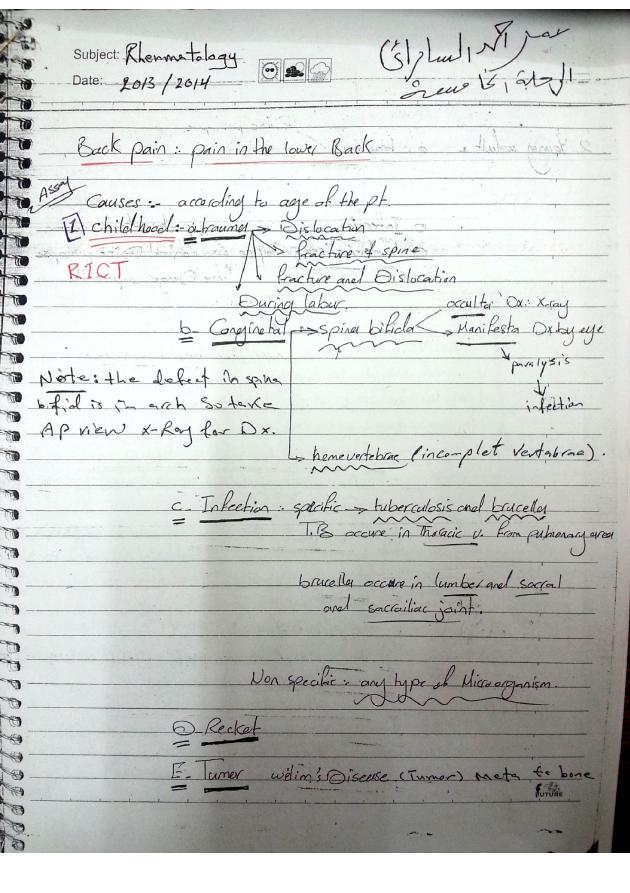 Subject: Rhenmatology
Date: 2013/2014
عمر احمد السامرائي
المرحلة الخامسة
Back pain : pain in the lower Back
Assay
Causes :- according to age of the pt.
1 childhood :- a trauma → Dislocation
fracture of spine
fracture and Dislocation
During labur.
RICT
b- Conginetal → spina bifida
occulta Dx: X-ray
Manifesta Dx by eye
paralysis
infection
Note: the defect in spina
bifid is in arch So take
AP view x-Ray for Dx.
hemevertebrae (incomplet vertabrae).
c- Infection : specific → tuberculosis and brucella
T.B occure in Thoracic v. from pulmonary area
brucella occure in lumber and sacral
and sacrailiac joint.
Non specific :- any type of Microorganism.
D Recket
E- Tumer wilim's Disease (Tumor) Meta to bone
FUTURE